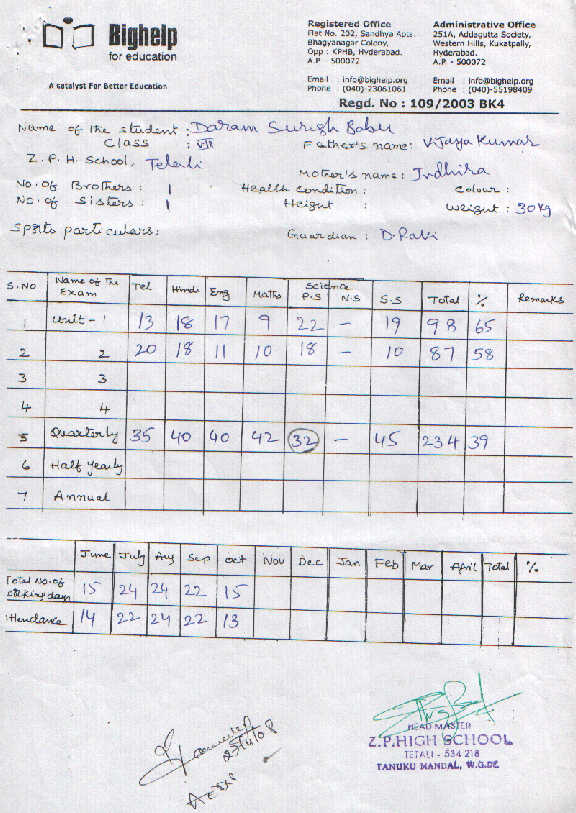 Bighelp
for education
A catalyst For Better Education
Registered Office
Flat No. 202, Sandhya Apts.
Bhagyanagar Colony,
Opp : KPHB, Hyderabad.
A.P - 500072
Email : info@bighelp.org
Phone : (040)-23061061
Administrative Office
251A, Addagutta Society,
Western Hills, Kukatpally,
Hyderabad.
A.P. - 500072
Email : info@bighelp.org
Phone : (040)-55198409
Regd. No : 109/2003 BK4
Name of the student : Daram Suresh Babu
Class : VII
Father's name: Vijaya Kumar
Z. P. H. School, Tetali
Mother's name: Indhira
No. of Brothers : 1 Health Condition : Colour :
No. of Sisters : 1 Height : Weight : 30 Kg
Sports particulars: Guardian : D. Pavi
S.No Name of The Exam Tel Hindi Eng Maths Science P.S N.S S.S Total % Remarks
1 Unit - 1 13 18 17 9 22 - 19 98 65
2 2 20 18 11 10 18 - 10 87 58
3 3
4 4
5 Quarterly 35 40 40 42 32 - 45 234 39
6 Half yearly
7 Annual
June July Aug Sep Oct Nov Dec Jan Feb Mar April Total %
Total No. of 15 24 24 22 15
working days
Attendance 14 22 24 22 13
HEAD MASTER
Z.P.HIGH SCHOOL
TETALI - 534 218
TANUKU MANDAL, W.G.Dt.